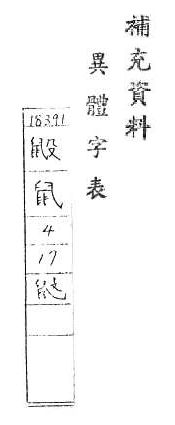 補充資料
異體字表
18391
鼠
4
17